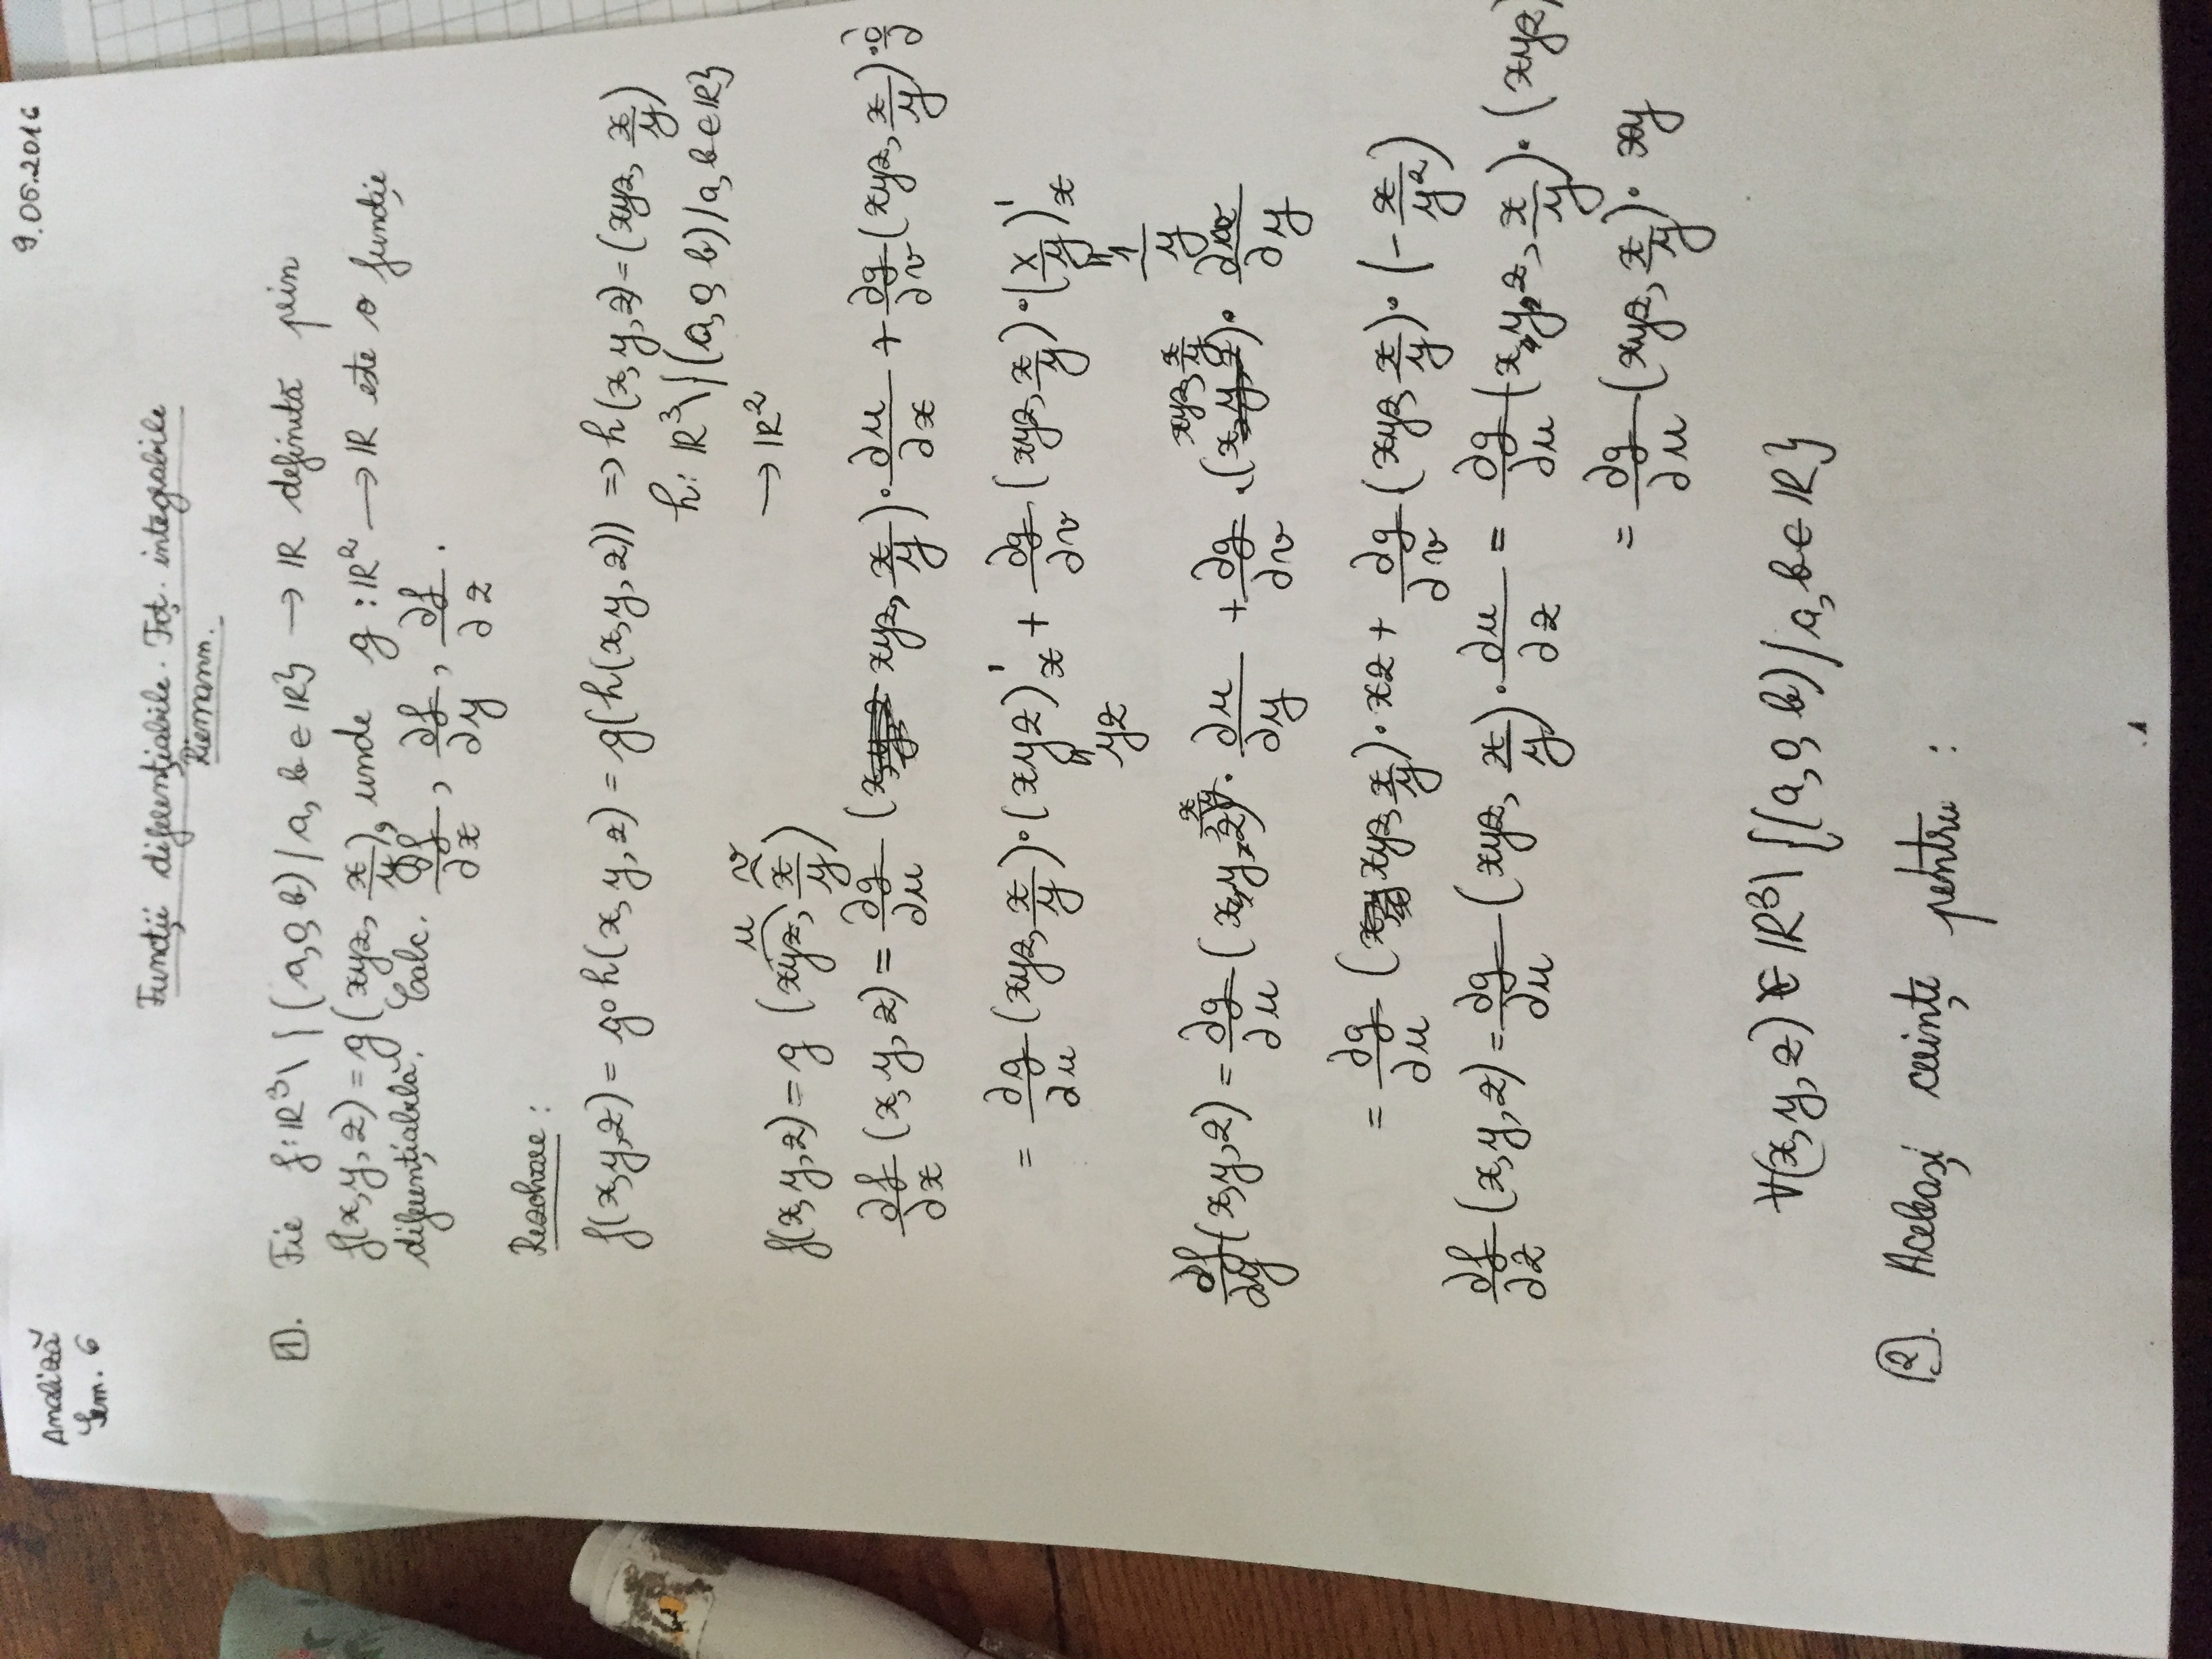 Analiză
Sem. 6
9.05.2016
Funcții diferențiabile. Fcț. integrabile
Riemann.
1. Fie f: ℝ³ \ {(a,0,b) / a, b ∈ ℝ} → ℝ definită prin
f(x,y,z) = g(xyz, x/y), unde g: ℝ² → ℝ este o funcție
diferențiabilă. Calc. ∂f/∂x, ∂f/∂y, ∂f/∂z.
Rezolvare:
f(x,y,z) = g∘h(x,y,z) = g(h(x,y,z)) => h(x,y,z) = (xyz, x/y)
h: ℝ³ \ {(a,0,b) / a,b ∈ ℝ}
→ ℝ²
u v
f(x,y,z) = g (xyz, x/y)
∂f/∂x (x,y,z) = ∂g/∂u (xyz, x/y) · ∂u/∂x + ∂g/∂v (xyz, x/y) ·
= ∂g/∂u (xyz, x/y) · (xyz)'x + ∂g/∂v (xyz, x/y) · (x/y)'x
= yz = 1/y
∂f/∂y (x,y,z) = ∂g/∂u (xyz, x/y) · ∂u/∂y + ∂g/∂v · (xyz, x/y) · ∂v/∂y
= ∂g/∂u (xyz, x/y) · xz + ∂g/∂v (xyz, x/y) · (- x/y²)
∂f/∂z (x,y,z) = ∂g/∂u (xyz, x/y) · ∂u/∂z = ∂g/∂u (xyz, x/y) · (xyz)
= ∂g/∂u (xyz, x/y) · xy
∀(x,y,z) ∈ ℝ³ \ {(a,0,b) / a,b ∈ ℝ}
2. Aceleași cerințe pentru :
.1